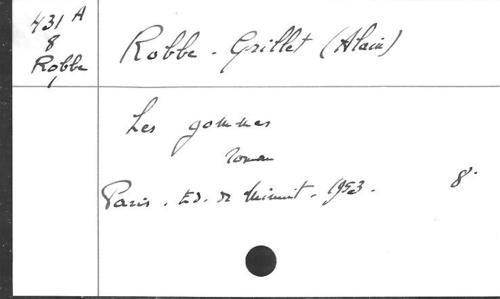 431 A
8
Robbe
1
Robbe - Grillet (Alain)
Les gommes
roman
Paris. Ed. de Minuit. 1953. 8°